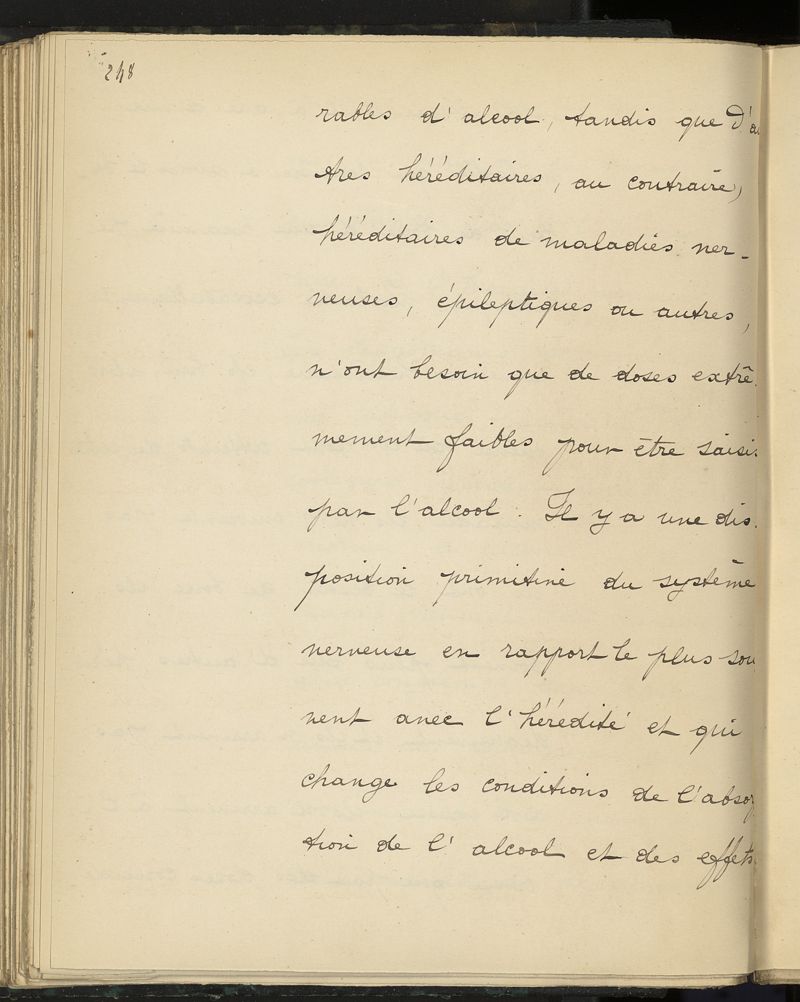 248
rables d'alcool, tandis que d'au
tres héréditaires, au contraire,
héréditaires de maladies ner-
veuses, épileptiques ou autres,
n'ont besoin que de doses extrê-
mement faibles pour être saisis
par l'alcool. Il y a une dis-
position primitive du système
nerveuse en rapport le plus sou
vent avec l'hérédité et qui
change les conditions de l'absorp
tion de l'alcool et des effets